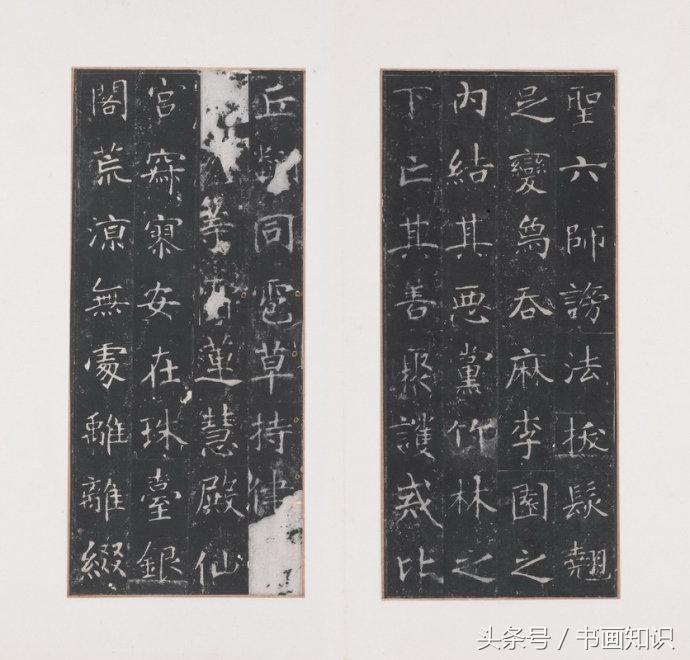 聖六師謗法拔髮翹
足變為吞麻李園之
内結其惡黨竹林之
下亡其善聚護戒比
丘同雹草持律
等霜蓮慧殿仙
宮寂寞安在珠臺銀
閣荒涼無處離離綴
头条号 / 书画知识